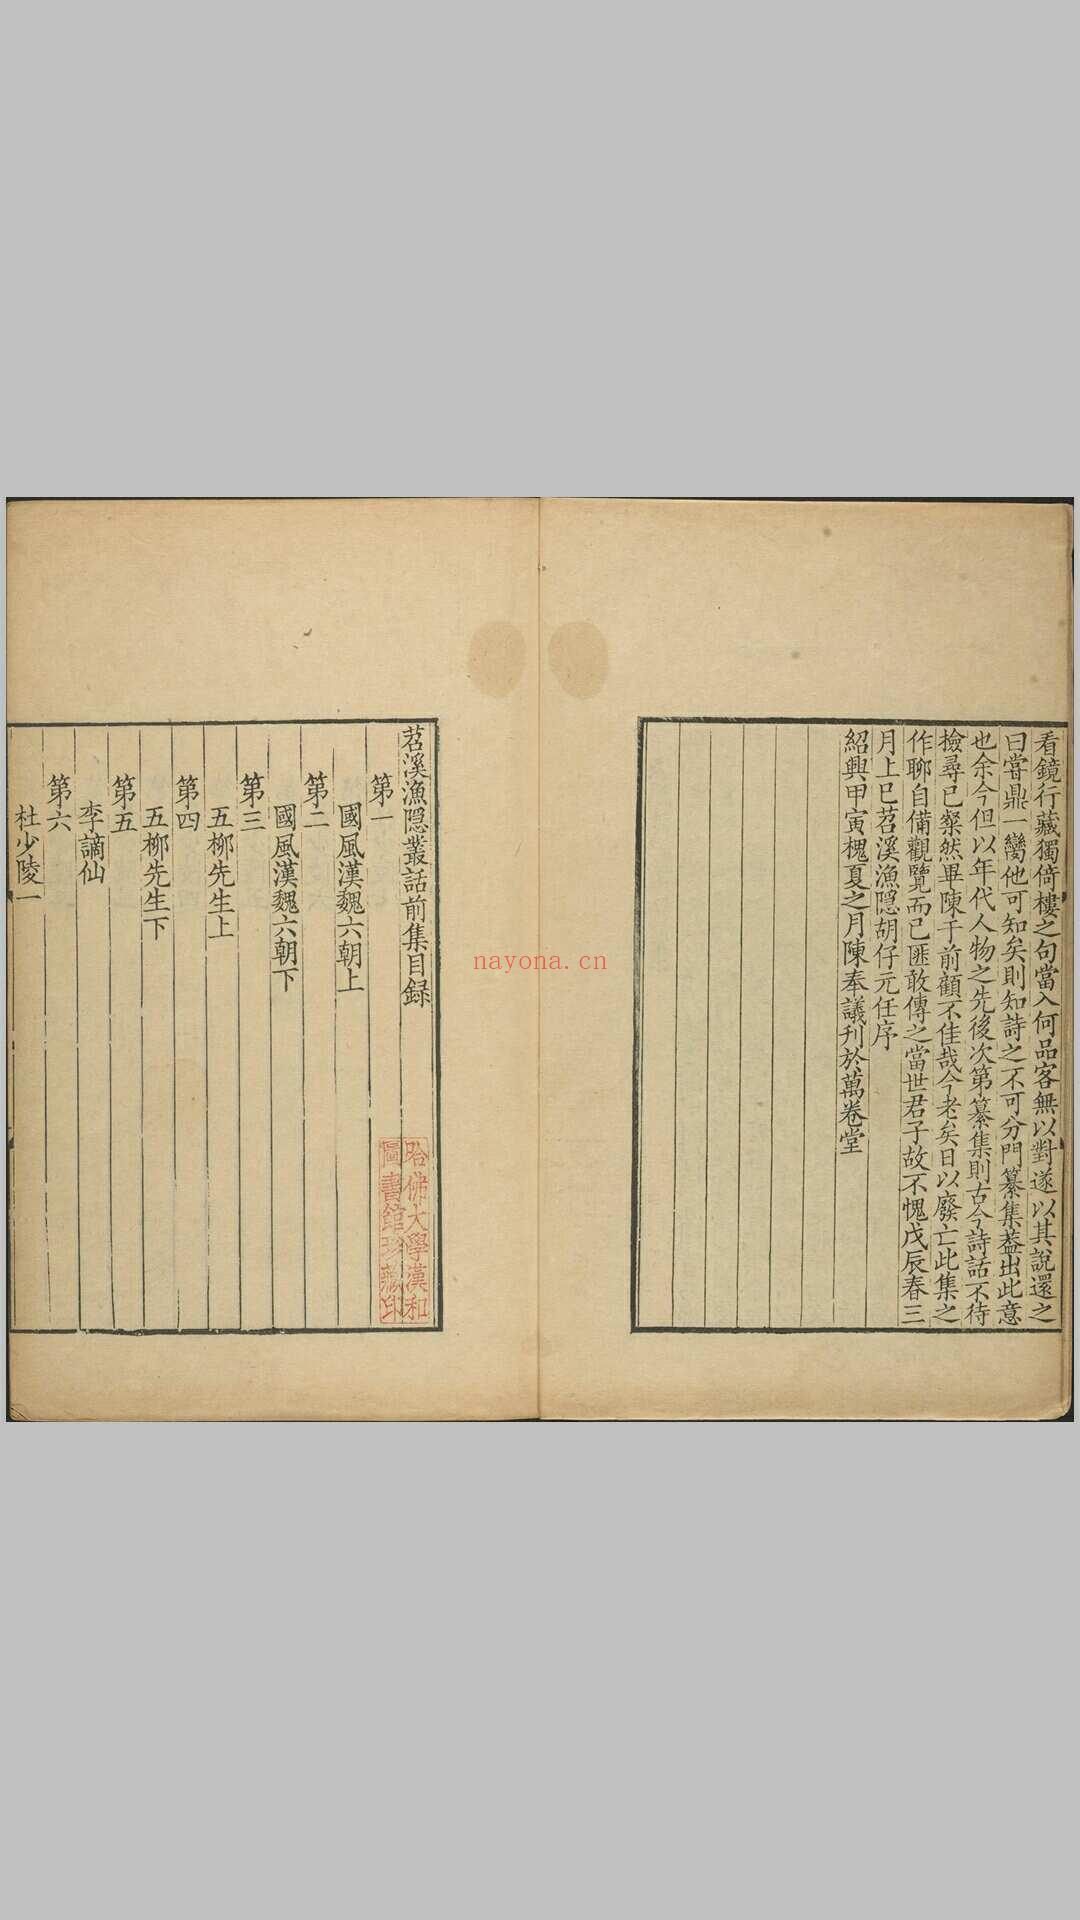 看鏡行藏獨倚樓之句當入何品客無以對遂以其說還之
曰嘗鼎一臠他可知矣則知詩之不可分門纂集蓋出此意
也余今但以年代人物之先後次第纂集則古今詩話不待
檢尋已粲然畢陳于前顧不佳哉今老矣日以廢亡此集之
作聊自備觀覽而已匪敢傳之當世君子故不愧戊辰春三
月上巳苕溪漁隱胡仔元任序
紹興甲寅槐夏之月陳奉議刊於萬卷堂
苕溪漁隱叢話前集目録
第一
國風漢魏六朝上
第二
國風漢魏六朝下
第三
五柳先生上
第四
五柳先生下
第五
李謫仙
第六
杜少陵一
哈佛大學漢和
圖書館珍藏印
nayona.cn